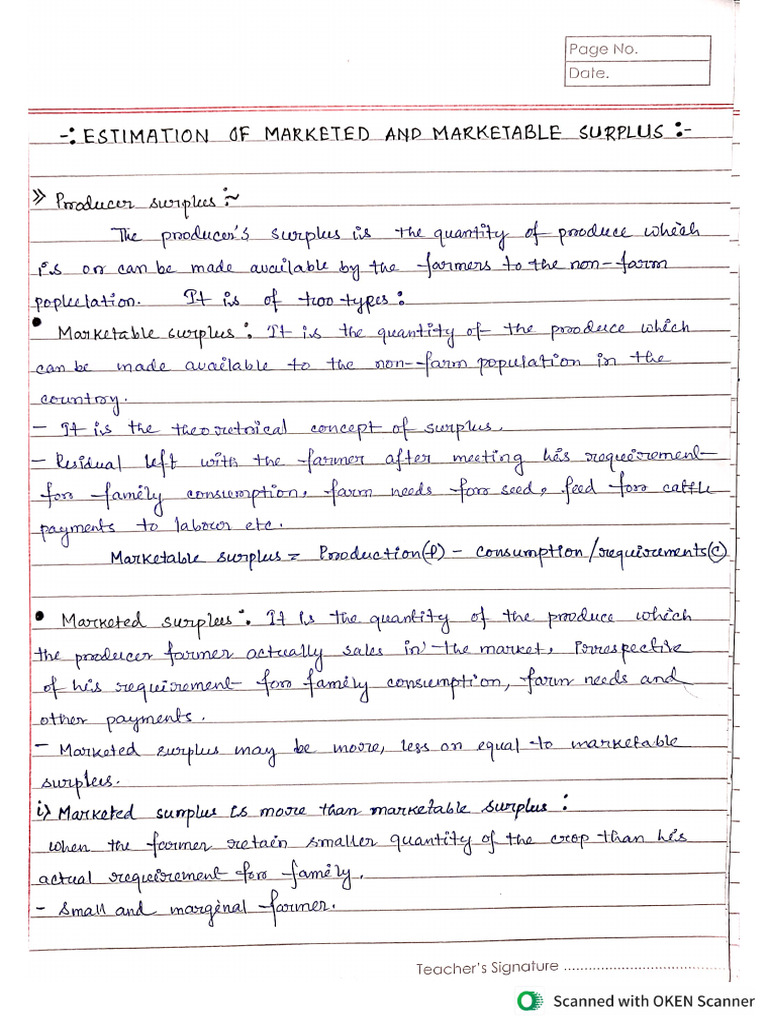 Page No.
Date.
-: ESTIMATION OF MARKETED AND MARKETABLE SURPLUS :-
» Producer surplus :~
The producer's surplus is the quantity of produce which
is or can be made available by the farmers to the non-farm
population. It is of two types :
• Marketable surplus : It is the quantity of the produce which
can be made available to the non-farm population in the
country.
- It is the theoretnical concept of surplus.
- Residual left with the farmer after meeting his requirement
for family consumption, farm needs for seed, feed for cattle
payments to labour etc.
Marketable surplus = Production(P) - consumption/requirements(C)
• Marketed surplus : It is the quantity of the produce which
the producer farmer actually sales in the market, irrespective
of his requirement for family consumption, farm needs and
other payments.
- Marketed surplus may be more, less or equal to marketable
surplus.
i) Marketed surplus is more than marketable surplus :
when the farmer retain smaller quantity of the crop than his
actual requirement for family.
- Small and marginal farmer.
Teacher's Signature ................................
Scanned with OKEN Scanner